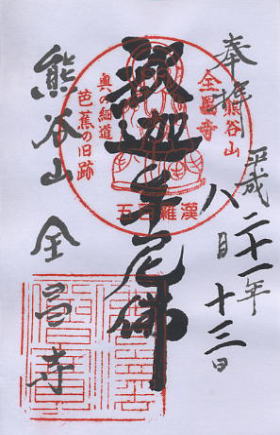 奉拝
平成二十一年
八月十三日
熊谷山
全昌寺
釈迦牟尼佛
奥の細道
芭蕉の旧跡
五百羅漢
熊谷山
全昌寺